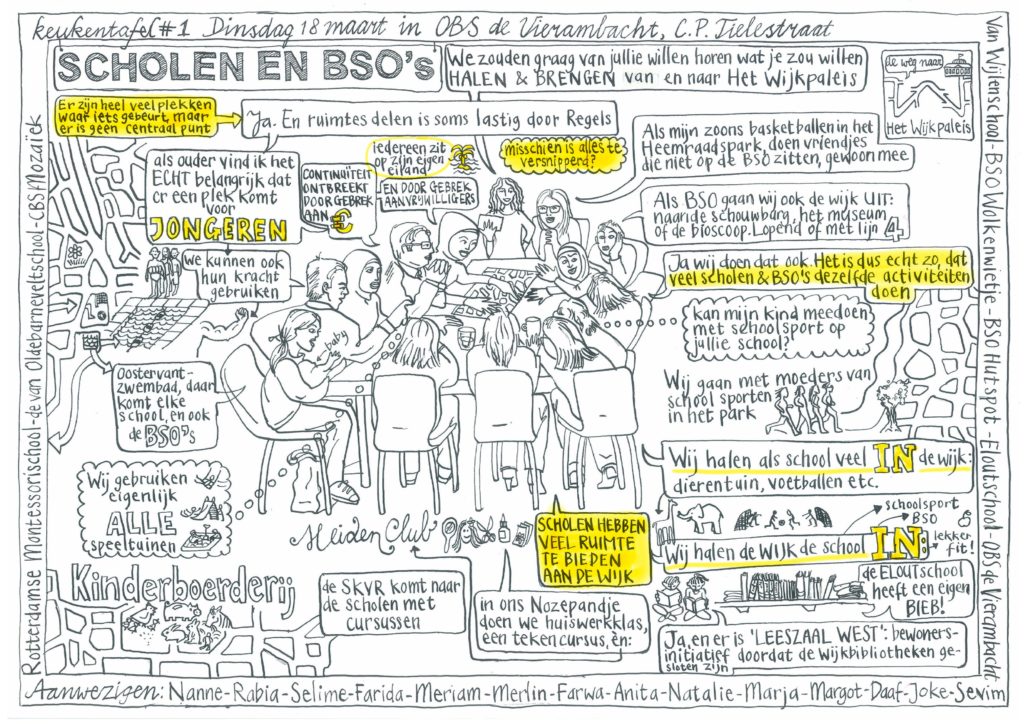 keukentafel #1 Dinsdag 18 maart in OBS de Vierambacht, C.P. Tielestraat
SCHOLEN EN BSO's
We zouden graag van jullie willen horen wat je zou willen
HALEN & BRENGEN van en naar Het Wijkpaleis
de weg naar
Het Wijkpaleis
Er zijn heel veel plekken
waar iets gebeurt, maar
er is geen centraal punt
Ja. En ruimtes delen is soms lastig door Regels
als ouder vind ik het
ECHT belangrijk dat
er een plek komt
voor
JONGEREN
CONTINUÏTEIT
ONTBREEKT
DOOR GEBREK
AAN €
iedereen zit
op zijn eigen
eiland
EN DOOR GEBREK
AAN VRIJWILLIGERS
misschien is alles te
versnipperd?
Als mijn zoons basketballen in het
Heemraadspark, doen vriendjes
die niet op de BSO zitten, gewoon mee
Als BSO gaan wij ook de wijk UIT:
naar de schouwburg, het museum
of de bioscoop. Lopend of met lijn 4
Ja wij doen dat ook. Het is dus echt zo, dat
veel scholen & BSO's dezelfde activiteiten
doen
we kunnen ook
hun kracht
gebruiken
baby
kan mijn kind meedoen
met schoolsport op
jullie school?
Oostervant-
zwembad, daar
komt elke
school, en ook
de BSO's
Wij gaan met moeders van
school sporten
in het park
Wij halen als school veel IN de wijk:
dierentuin, voetballen etc.
Wij gebruiken
eigenlijk
ALLE
speeltuinen
Meiden Club
SCHOLEN HEBBEN
VEEL RUIMTE
TE BIEDEN
AAN DE WIJK
schoolsport
BSO
Wij halen de WIJK de school IN:
lekker
fit!
Kinderboerderij
de SKVR komt naar
de scholen met
cursussen
in ons Nozepandje
doen we huiswerkklas,
een tekencursus, én:
de ELOUTschool
heeft een eigen
BIEB!
Ja, en er is 'LEESZAAL WEST': bewoners-
initiatief doordat de wijkbibliotheken ge-
sloten zijn
Rotterdamse Montessorischool - de van Oldebarneveltschool - CBS Mozaïek
Van Wijlenschool - BSO Wolkenwietje - BSO Hutspot - Eloutschool - OBS de Vierambacht
Aanwezigen: Nanne - Rabia - Selime - Farida - Meriam - Merlin - Farwa - Anita - Natalie - Marja - Margot - Daaf - Joke - Sevim